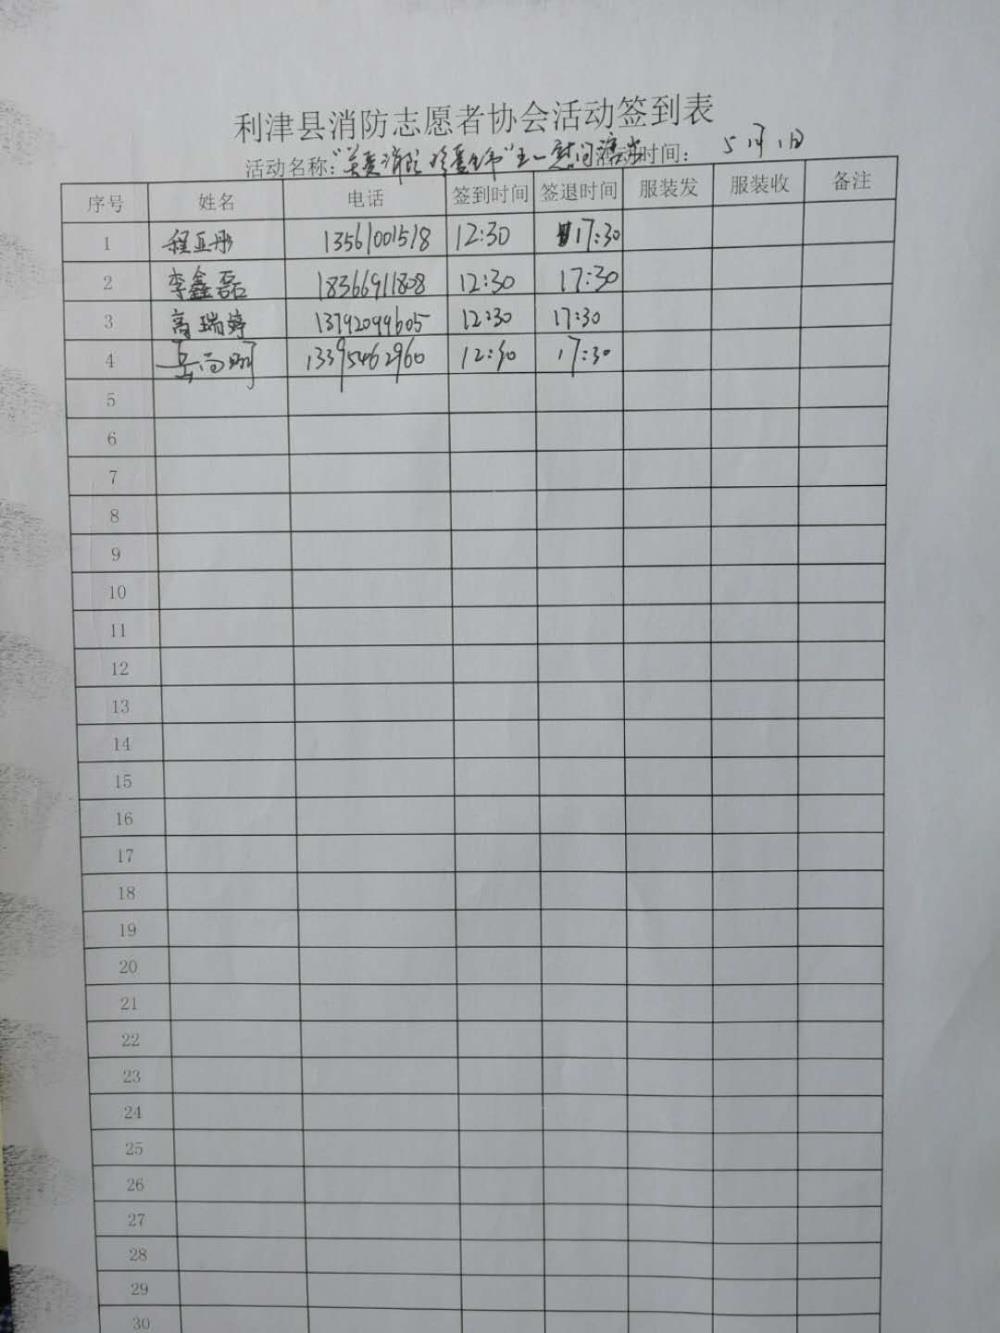 利津县消防志愿者协会活动签到表
活动名称："关爱消防 珍重生命"五一慰问演出 活动时间： 5月1日
序号 姓名 电话 签到时间 签退时间 服装发 服装收 备注
1 程亚彤 13561001518 12:30 17:30
2 李鑫磊 18366911808 12:30 17:30
3 高瑞婷 13792099605 12:30 17:30
4 13395462960 12:30 17:30
5
6
7
8
9
10
11
12
13
14
15
16
17
18
19
20
21
22
23
24
25
26
27
28
29
30